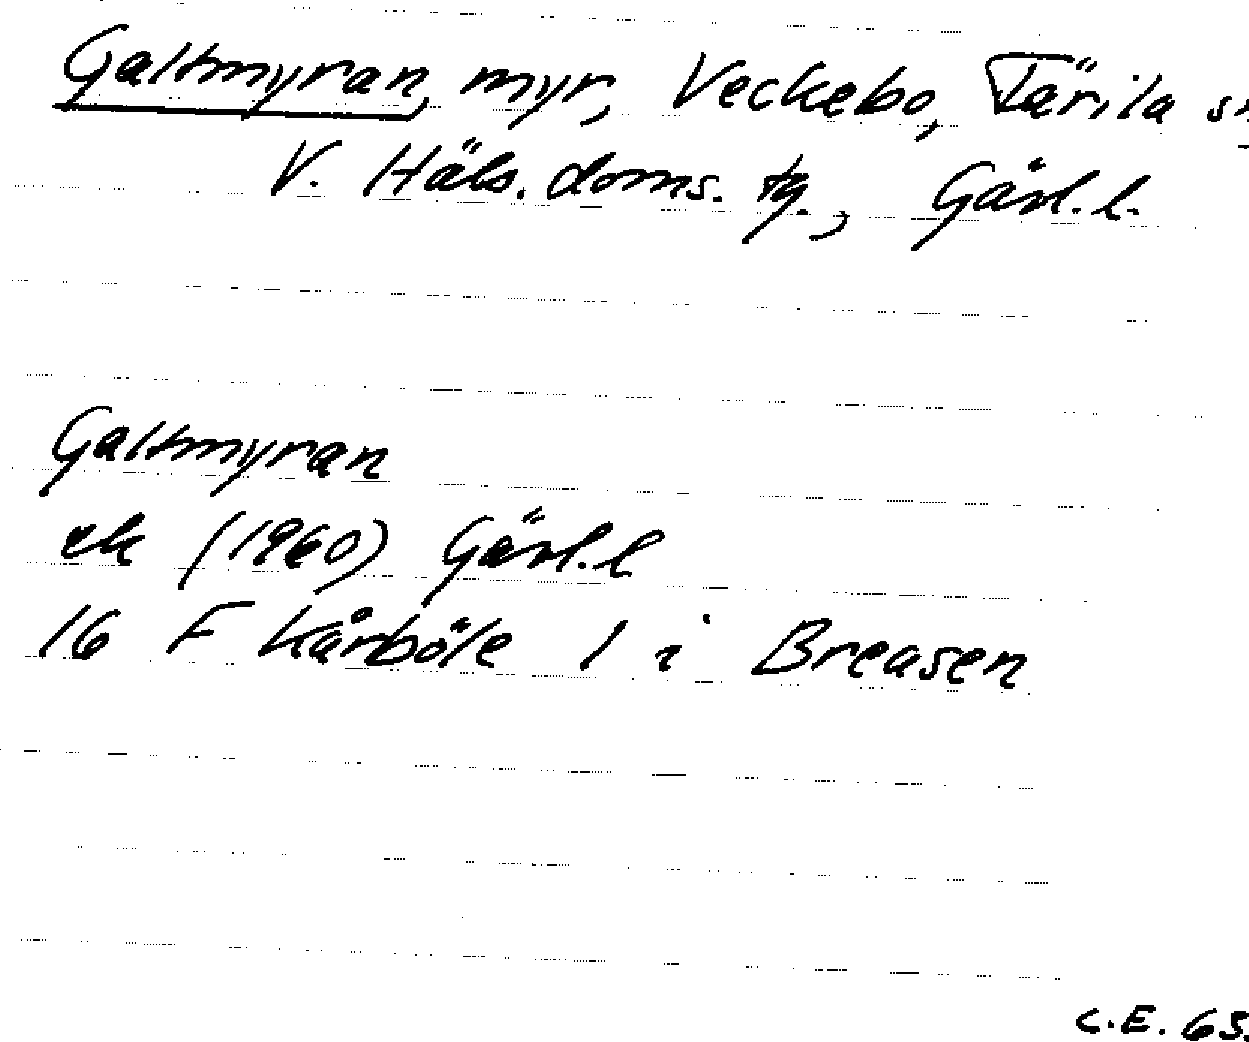 Galtmyran, myr, Veckebo, Färila sn,
V. Häls. doms. tg., Gävl. l.
Galtmyran
ek (1960) Gävl. l
16 F Kårböle 1 i Breasen
C.E. 65.